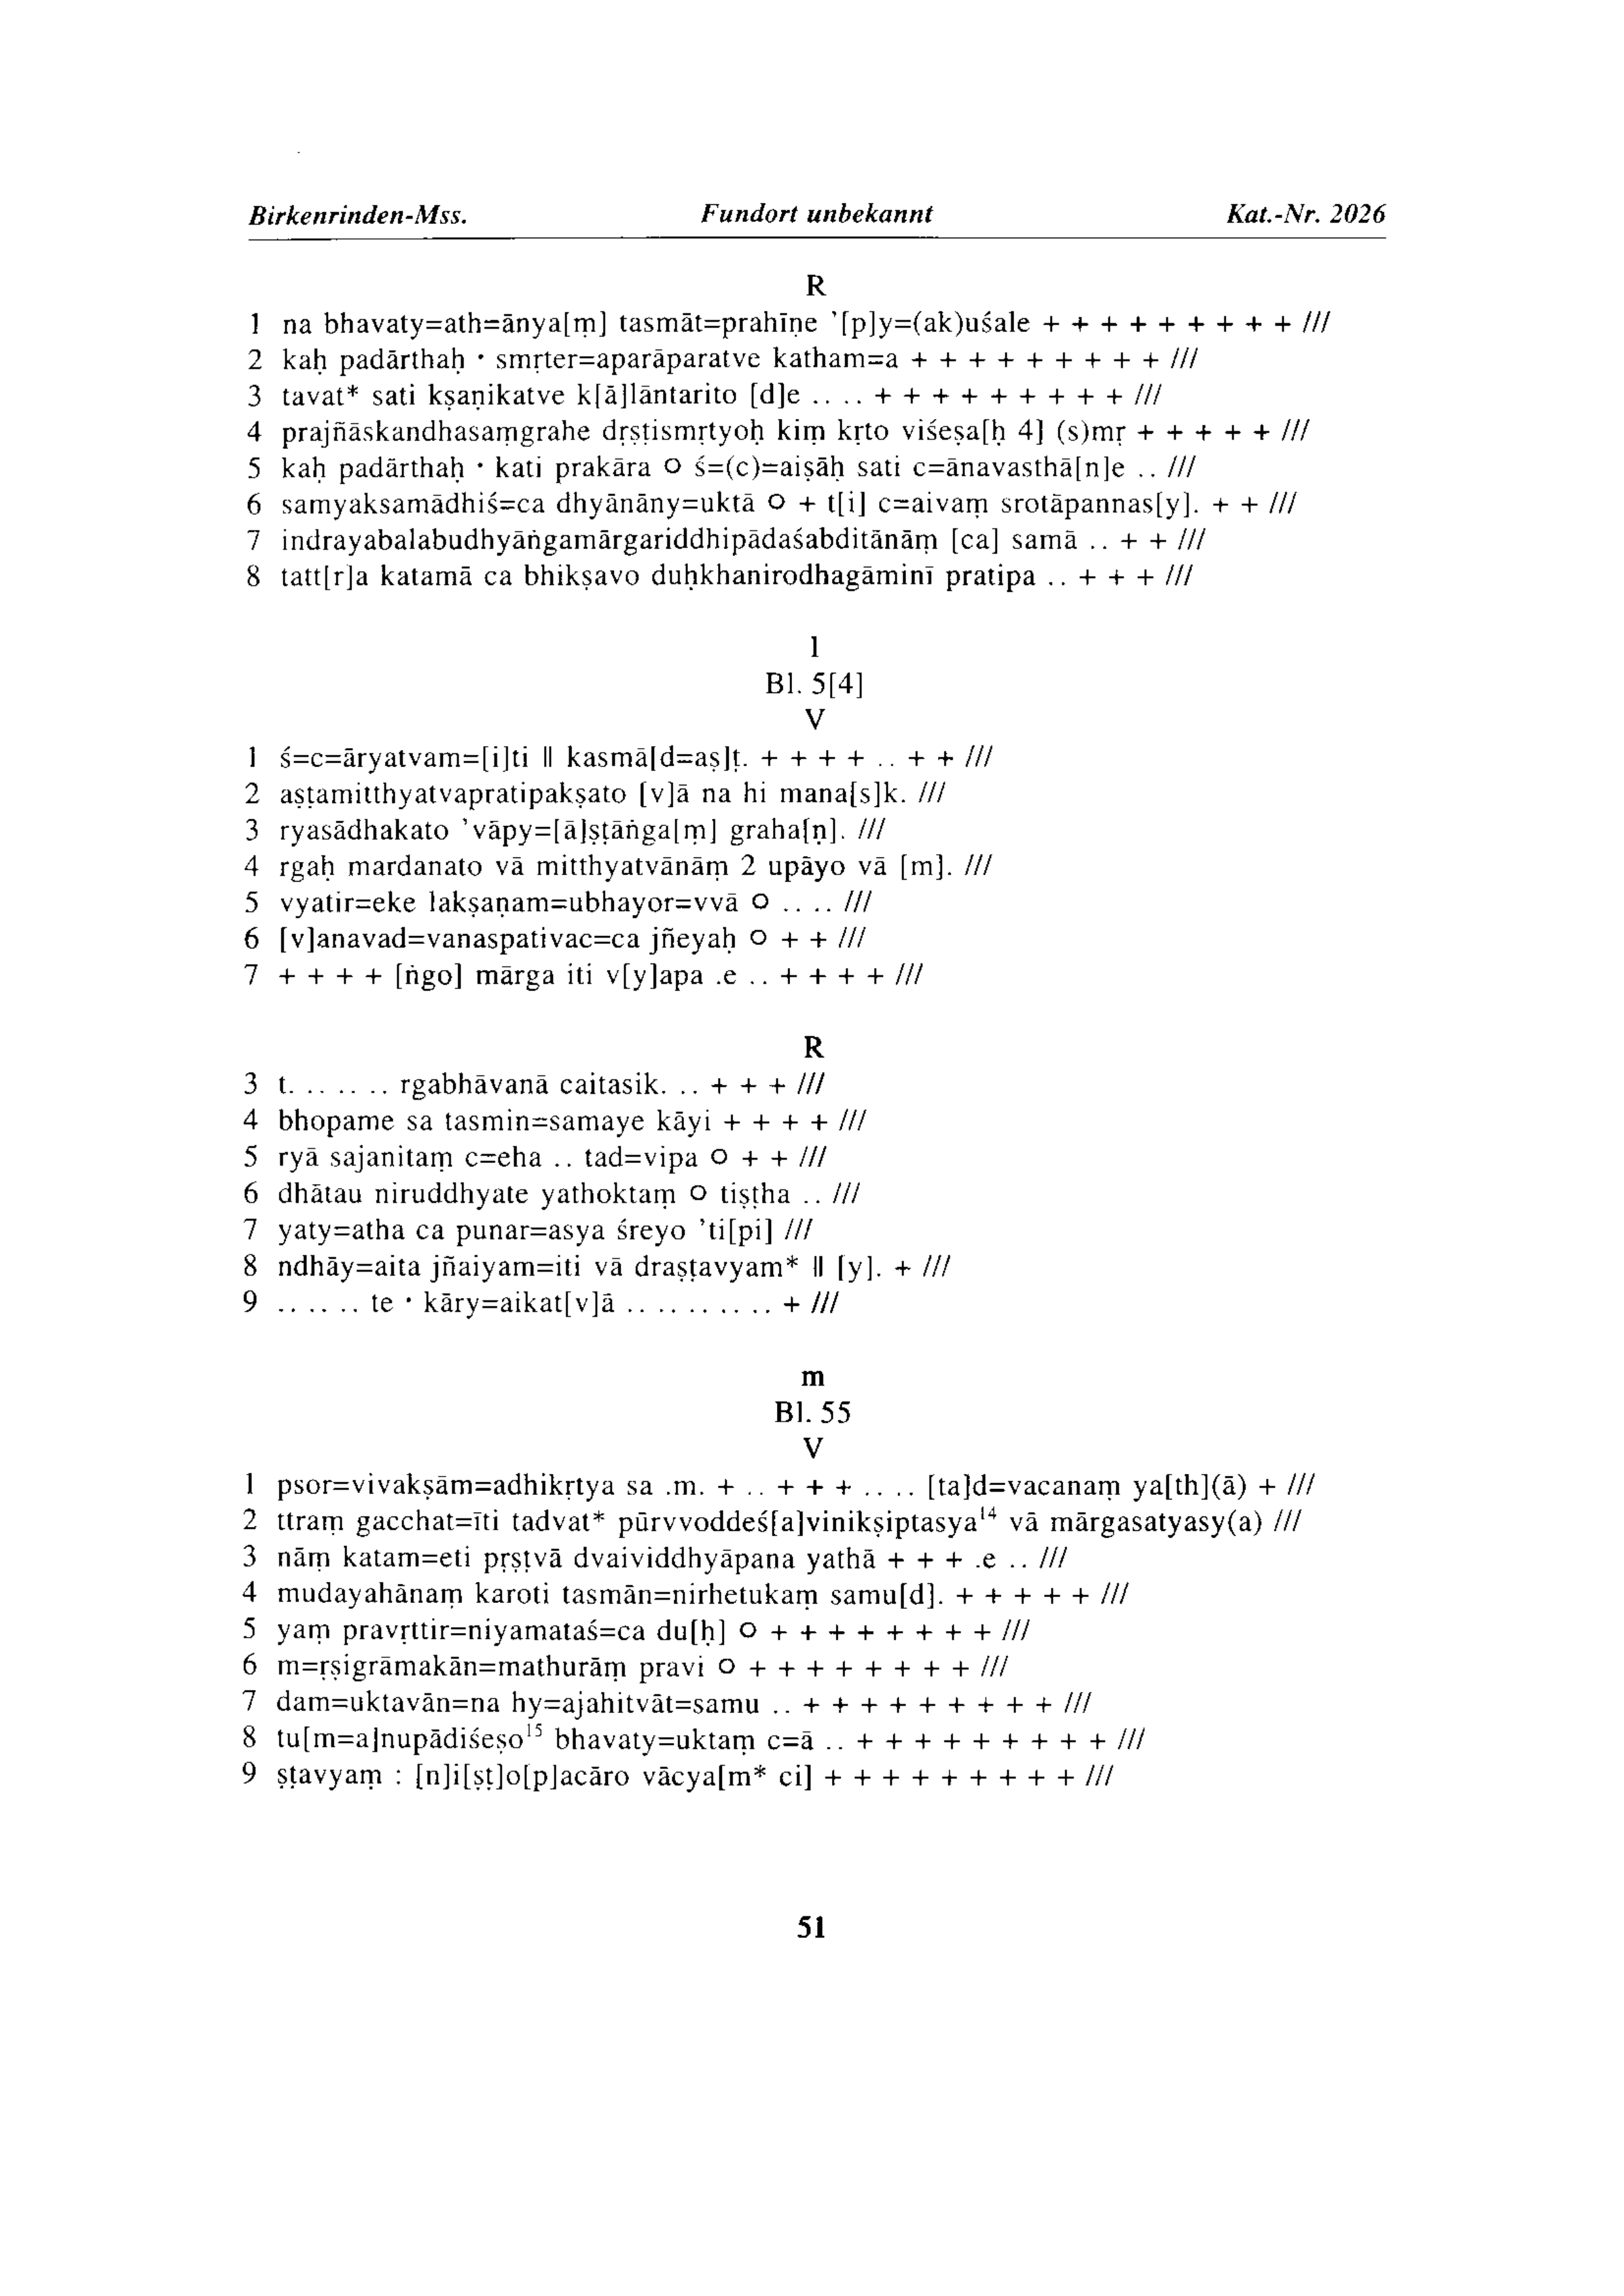 Birkenrinden-Mss. Fundort unbekannt Kat.-Nr. 2026
R
1 na bhavaty=ath=ānya[ṃ] tasmāt=prahīṇe ’[p]y=(ak)uśale + + + + + + + + + ///
2 kaḥ padārthaḥ · smṛter=aparāparatve katham=a + + + + + + + + + ///
3 tavat* sati kṣaṇikatve k[ā]lāntarito [d]e .. .. + + + + + + + + + ///
4 prajñāskandhasaṃgrahe dṛṣṭismṛtyoḥ kiṃ kṛto viśeṣa[ḥ 4] (s)mṛ + + + + + ///
5 kaḥ padārthaḥ · kati prakāra ○ ś=(c)=aiṣāḥ sati c=ānavasthā[n]e .. ///
6 samyaksamādhiś=ca dhyānāny=uktā ○ + t[i] c=aivaṃ srotāpannas[y]. + + ///
7 indrayabalabudhyāṅgamārgariddhipādaśabditānāṃ [ca] samā .. + + ///
8 tatt[r]a katamā ca bhikṣavo duḥkhanirodhagāminī pratipa .. + + + ///
l
Bl. 5[4]
V
1 ś=c=āryatvam=[i]ti ‖ kasmā[d=aṣ]ṭ. + + + + .. + + ///
2 aṣṭamitthyatvapratipakṣato [v]ā na hi mana[s]k. ///
3 ryasādhakato ’vāpy=[ā]ṣṭāṅga[ṃ] graha[ṇ]. ///
4 rgaḥ mardanato vā mitthyatvānāṃ 2 upāyo vā [m]. ///
5 vyatir=eke lakṣaṇam=ubhayor=vvā ○ .. .. ///
6 [v]anavad=vanaspativac=ca jñeyaḥ ○ + + ///
7 + + + + [ṅgo] mārga iti v[y]apa .e .. + + + + ///
R
3 t. .. .. .. rgabhāvanā caitasik. .. + + + ///
4 bhopame sa tasmin=samaye kāyi + + + + ///
5 ryā sajanitaṃ c=eha .. tad=vipa ○ + + ///
6 dhātau niruddhyate yathoktaṃ ○ tiṣṭha .. ///
7 yaty=atha ca punar=asya śreyo ’ti[pi] ///
8 ndhāy=aita jñaiyam=iti vā draṣṭavyam* ‖ [y]. + ///
9 .. .. .. te · kāry=aikat[v]ā .. .. .. .. .. + ///
m
Bl. 55
V
1 psor=vivakṣām=adhikṛtya sa .m. + .. + + + .. .. [ta]d=vacanaṃ ya[th](ā) + ///
2 ttraṃ gacchat=īti tadvat* pūrvvoddeś[a]vinikṣiptasya¹⁴ vā mārgasatyasy(a) ///
3 nāṃ katam=eti pṛṣṭvā dvaividdhyāpana yathā + + + .e .. ///
4 mudayahānaṃ karoti tasmān=nirhetukaṃ samu[d]. + + + + + ///
5 yaṃ pravṛttir=niyamataś=ca du[ḥ] ○ + + + + + + + + ///
6 m=ṛṣigrāmakān=mathurāṃ pravi ○ + + + + + + + + ///
7 dam=uktavān=na hy=ajahitvāt=samu .. + + + + + + + + + ///
8 tu[m=a]nupādiśeṣo¹⁵ bhavaty=uktaṃ c=ā .. + + + + + + + + + ///
9 ṣṭavyaṃ : [n]i[ṣṭ]o[p]acāro vācya[m* ci] + + + + + + + + + ///
51